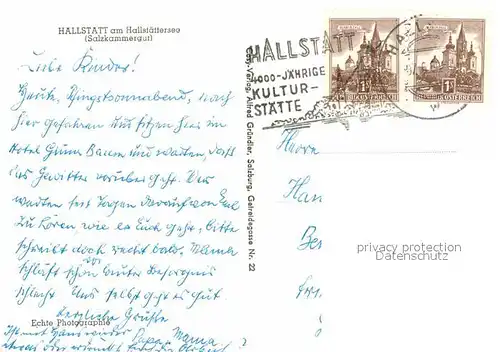 HALLSTATT am Hallstättersee
(Salzkammergut)
Liebe Kinder!
Heute, Pfingstsonnabend, nach
hier gefahren und sitzen hier im
Hotel Grüner Baum und warten, daß
das Gewitter vorüber geht. Wir
warten seit Tagen darauf von Euch
zu hören, wie es Euch geht, bitte
schreibt doch recht bald. Mama
schläft schon vor lauter Besorgnis
schlecht. Uns selbst geht es gut
Herzliche Grüße
Papa Mama
Echte Photographie
Verlag Alfred Gründler, Salzburg, Getreidegasse Nr. 22
HALLSTATT
4000-JÄHRIGE
KULTUR-
STÄTTE
HALL
1S
ÖSTERREICH
1S
ÖSTERREICH
Herrn
privacy protection
Datenschutz